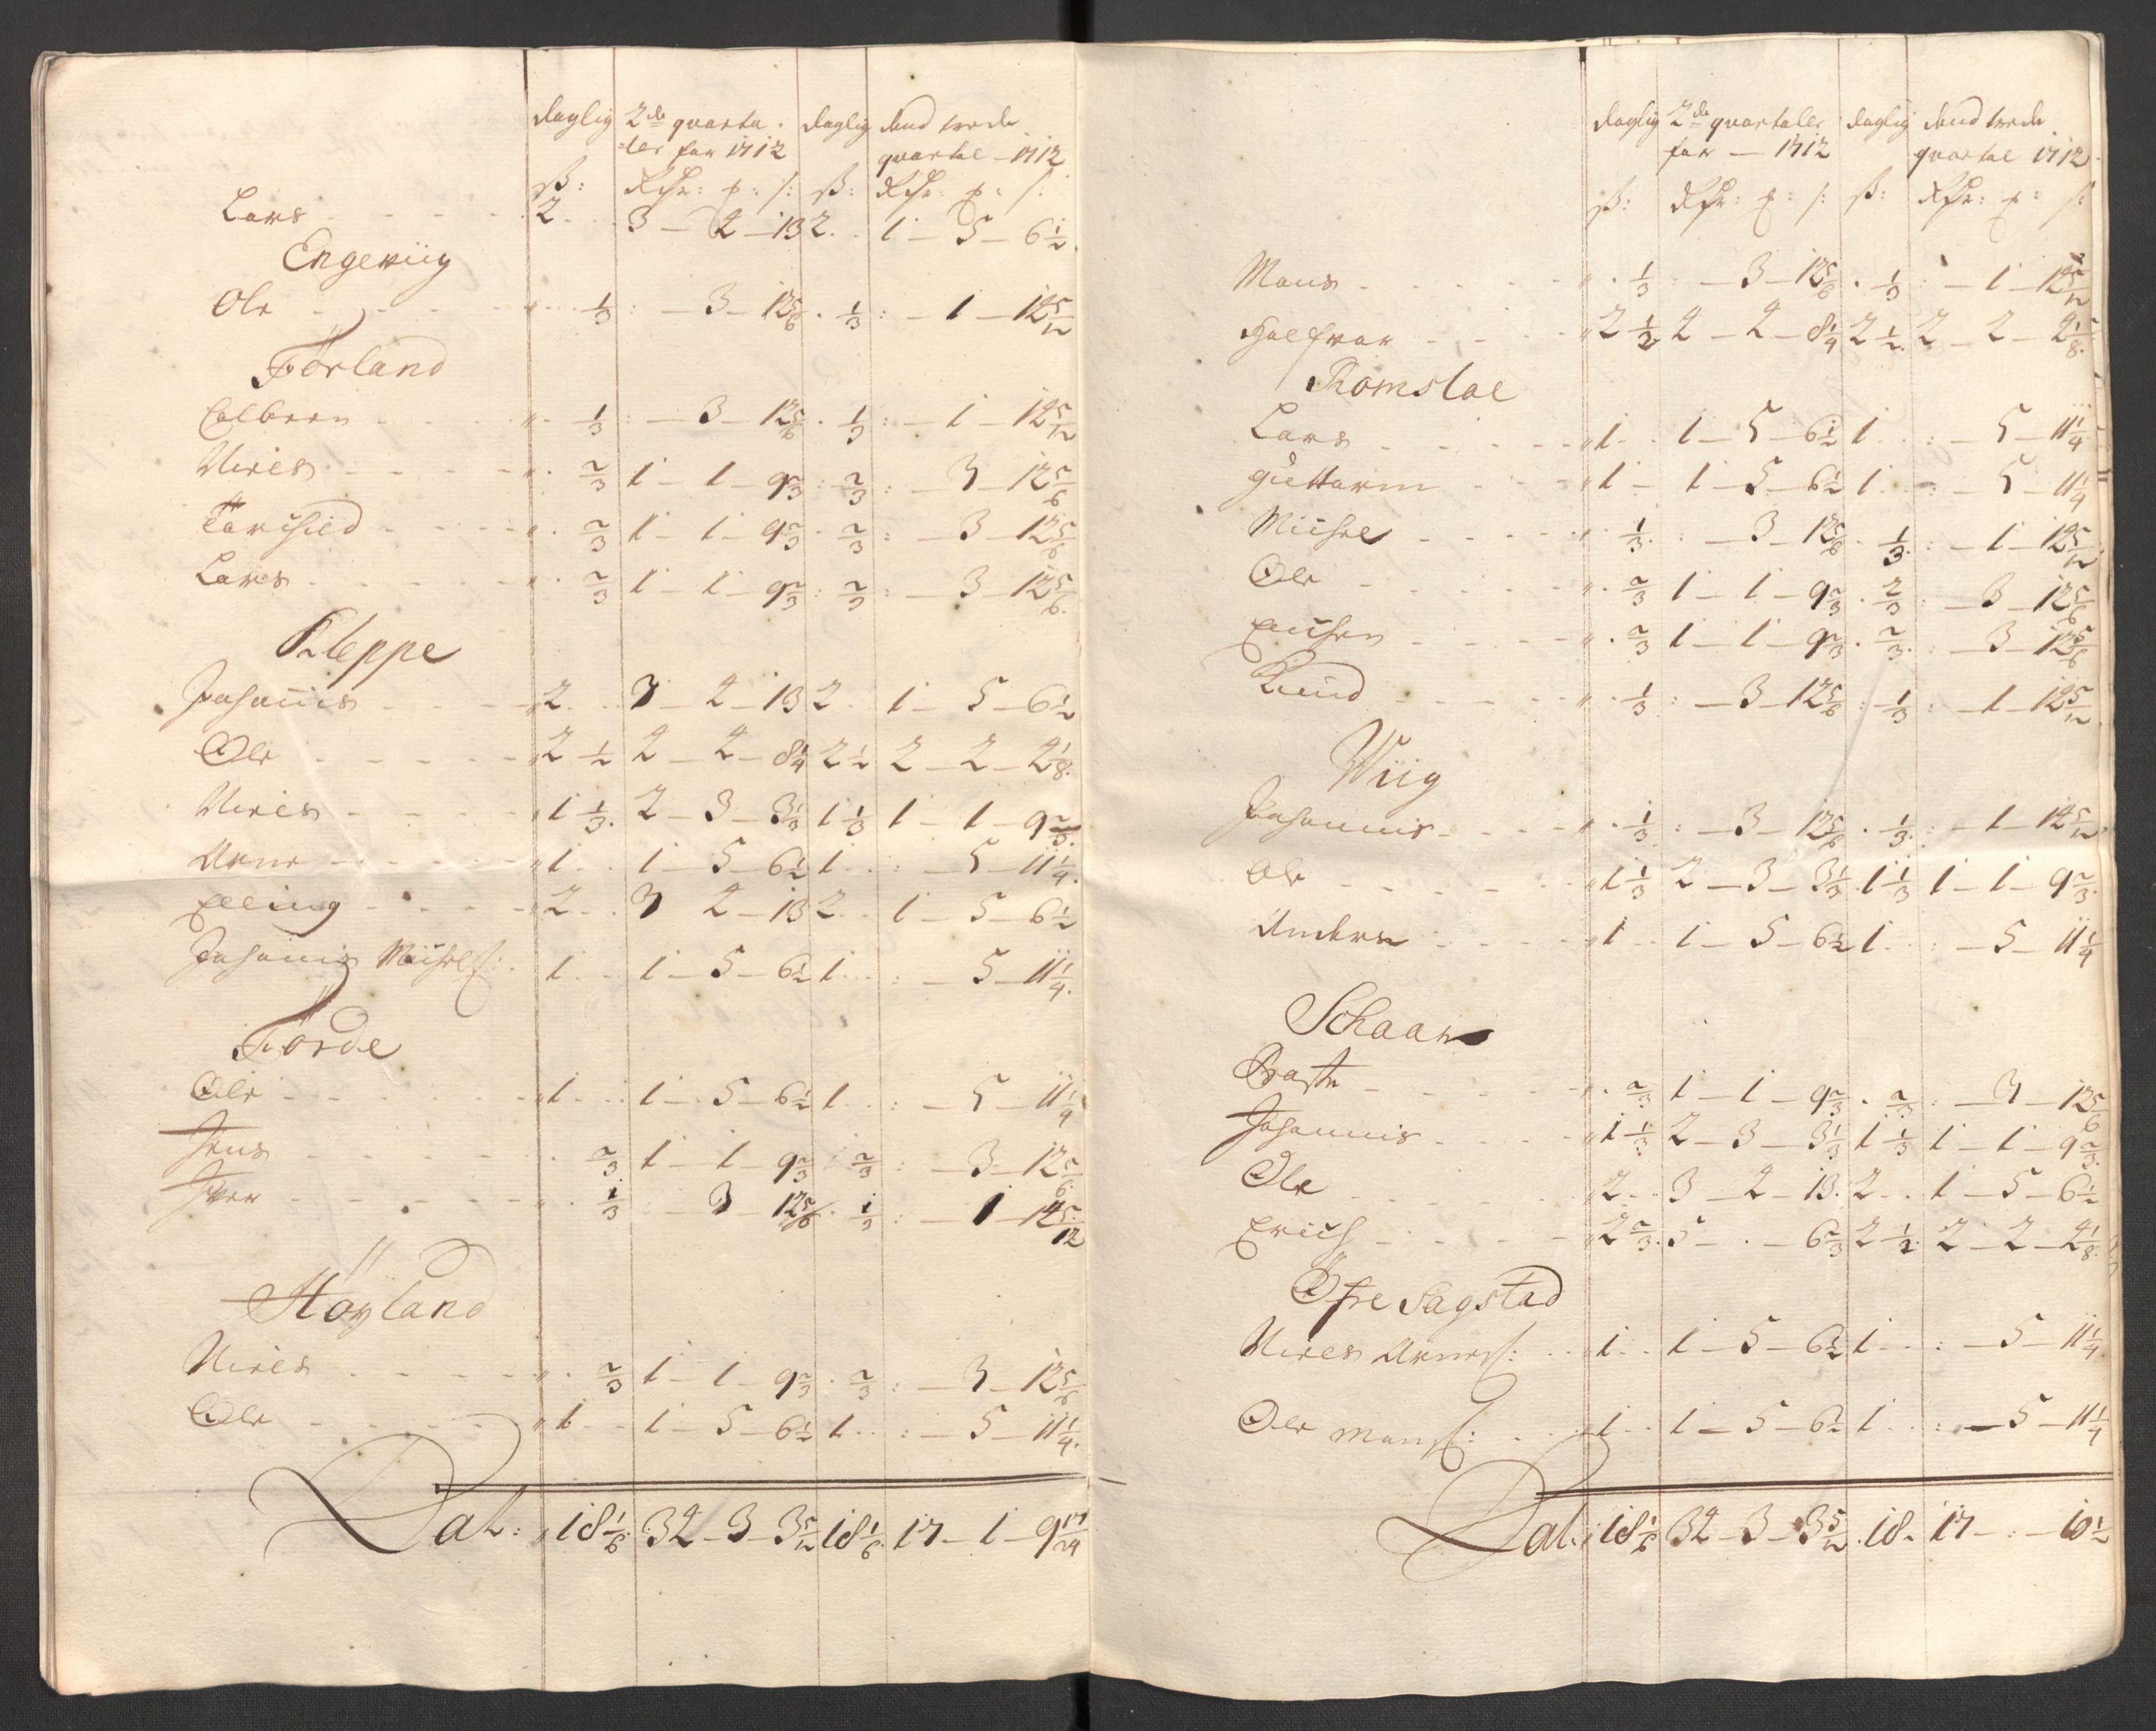 daglig 2de qvarta- daglig dend trede
-ler for 1712 qvartal - 1712
ß: Rdr: ß: Rdr:
Lars - - - - 2 . . 3 - 4 - 13 2 . . 1 - 5 - 6 1/2
Engeviig
Ole - - - - 1/3 : - 3 - 12 5/6 . 1/3 : - 1 - 14 5/12
Förland
Colbeen - - - - 1/3 : - 3 - 12 5/6 . 1/3 : - 1 - 14 5/12
Niels - - - - 2/3 1 - 1 - 9 2/3 : 2/3 : - 3 - 12 5/6
Torchild - - - - 2/3 1 - 1 - 9 2/3 . 2/3 : - 3 - 12 5/6
Lars - - - - 2/3 1 - 1 - 9 2/3 : 2/3 : - 3 - 12 5/6
Kleppe
Johannis - - - 2 . . 3 - 4 - 13 2 . . 1 - 5 - 6 1/2
Ole - - - - 2 1/2 4 - 4 - 8 1/4 2 1/2 2 - 2 - 4 1/8
Niels - - - - 1 1/3 2 - 3 - 3 1/3 1 1/3 1 - 1 - 9 2/3
Arne - - - - 1 . . 1 - 5 - 6 1/2 1 . . : - 5 - 11 1/4
Elling - - - - 2 . . 3 4 - 13 2 . . 1 - 5 - 6 1/2
Johannis Michels: . 1 . . 1 - 5 - 6 1/2 1 . . : - 5 - 11 1/4
Förde
Ole - - - - 1 . . 1 - 5 - 6 1/2 1 . . : - 5 - 11 1/4
Jens - - - - 2/3 1 - 1 - 9 2/3 2/3 : - 3 - 12 5/6
Iver - - - - 1/3 : - 3 - 12 5/6 . 1/3 : - 1 - 14 5/12
Höyland
Niels - - - - 2/3 1 - 1 - 9 2/3 . 2/3 : - 3 - 12 5/6
Ole - - - - 1 . . 1 - 5 - 6 1/2 1 . . : - 5 - 11 1/4
Lat: 18 1/6 34 - 3 - 3 5/12 18 1/6 17 - 1 - 9 17/24
daglig 2de qvartaler daglig dend trede
for - 1712 qvartal 1712
ß: Rdr: ß: Rdr:
Mons - - - - 1/3 : - 3 - 12 5/6 . 1/3 : - 1 - 14 5/12
Halfvor - - - 2 1/2 4 - 4 - 8 1/4 2 1/2 2 - 2 - 4 1/8
Romsloe
Lars - - - - 1 . . 1 - 5 - 6 1/2 1 . . : - 5 - 11 1/4
Guttorm - - - 1 - 1 - 5 - 6 1/2 1 . . : - 5 - 11 1/4
Michel - - - - 1/3 : - 3 - 12 5/6 . 1/3 : - 1 - 14 5/12
Ole - - - - 2/3 1 - 1 - 9 2/3 . 2/3 : - 3 - 12 5/6
- - - - 2/3 1 - 1 - 9 2/3 . 2/3 : - 3 - 12 5/6
Knud - - - - 1/3 : - 3 - 12 5/6 : 1/3 : - 1 - 14 5/12
Wiig
Johannis - - - - 1/3 : - 3 - 12 5/6 . 1/3 : - 1 - 14 5/12
Ole - - - - 1 1/3 2 - 3 - 3 1/3 1 1/3 1 - 1 - 9 2/3
Anders - - - 1 . . 1 - 5 - 6 1/2 1 . . : - 5 - 11 1/4
Schaar
- - - - 2/3 1 - 1 - 9 2/3 . 2/3 : - 3 - 12 5/6
Johannis - - - 1 1/3 2 - 3 - 3 1/3 1 1/3 1 - 1 - 9 2/3
Ole - - - - 2 . . 3 - 4 - 13 . 2 . . 1 - 5 - 6 1/2
Erich - - - - 2 2/3 5 - . - 6 2/3 2 1/2 2 - 2 - 4 1/8
Öfre Sagstad
Niels Arnes: . . 1 . . 1 - 5 - 6 1/2 1 . . : - 5 - 11 1/4
Ole Mons: . . 1 . . 1 - 5 - 6 1/2 1 . . : - 5 - 11 1/4
Lat: 18 1/6 34 - 3 - 3 5/12 . 18 - 17 - : - 10 1/2